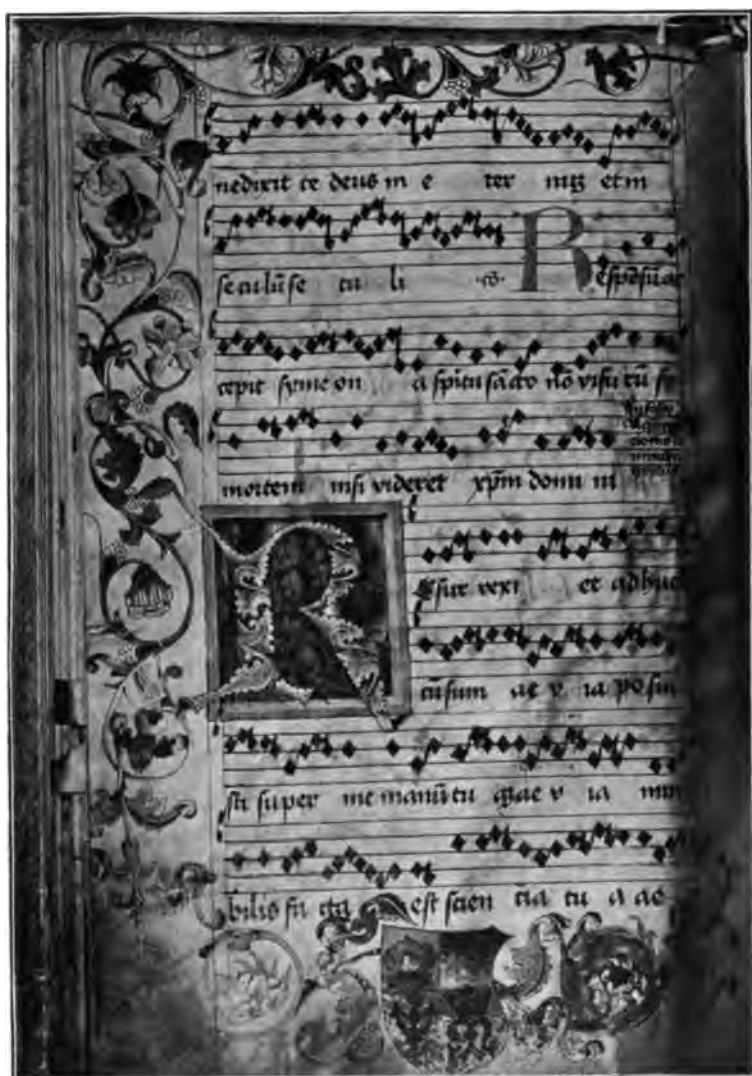 nedixit te deus in e ter nuʒ et in
seculū se cu li · cō · R Espōsū ac
cepit syme on a spītu sācto nō visu rū se
mortem nisi videret xp̄m domi ni
R Esur rexi et adhuc
tecū sum ae v ia po sui
sti super me manū tu ā ae v ia mira
bilis fa cta est scien tia tu a ae